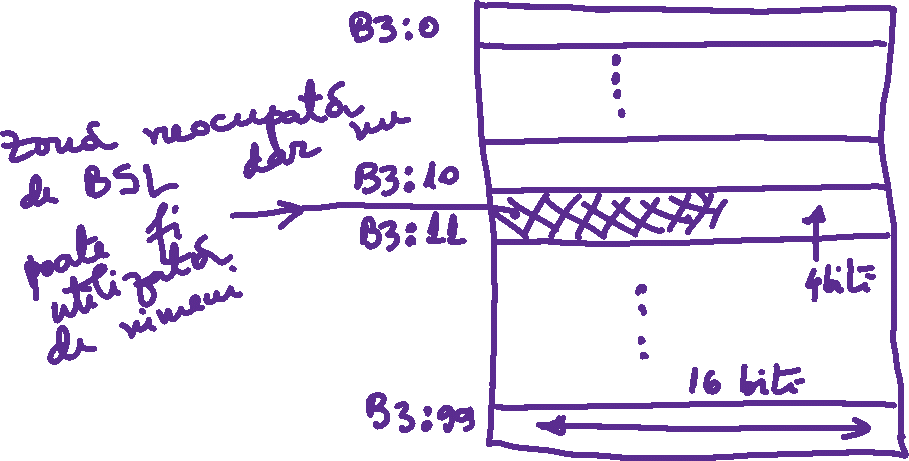 B3:0
Zonă neocupată
de BSL dar nu
poate fi
utilizată
de nimeni
B3:10
B3:11
4biti
16 biti
B3:99